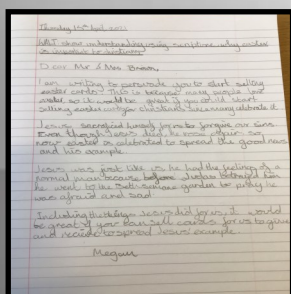 Thursday 1st April 2021
WALT show understanding using scripture why easter is important to christians
Dear Mr & Mrs Brown,
I am writing to persuade you to start selling
easter cards. This is because many people love
easter so it would be great if you could start
selling easter cards for christians because many celebrate it.
Jesus sacrificed himself for us to forgive our sins.
Even though Jesus died, he rose again so
now easter is celebrated to spread the good news
and his example.
Jesus was just like us he had the feelings of a
normal man because before Judas betrayed him
he went to the Gethsemane garden to pray he
was afraid and sad
Including the things Jesus did for us it would
be great if you can sell cards for us to give
and receive to spread Jesus' example.
Megan